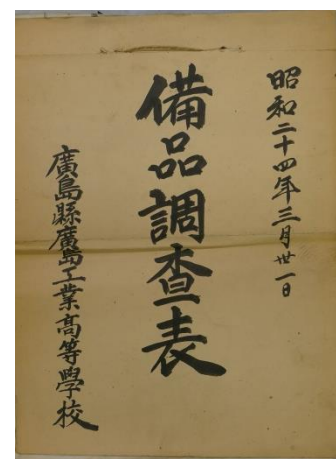 昭和二十四年三月卅一日
備品調査表
廣島縣廣島工業高等學校